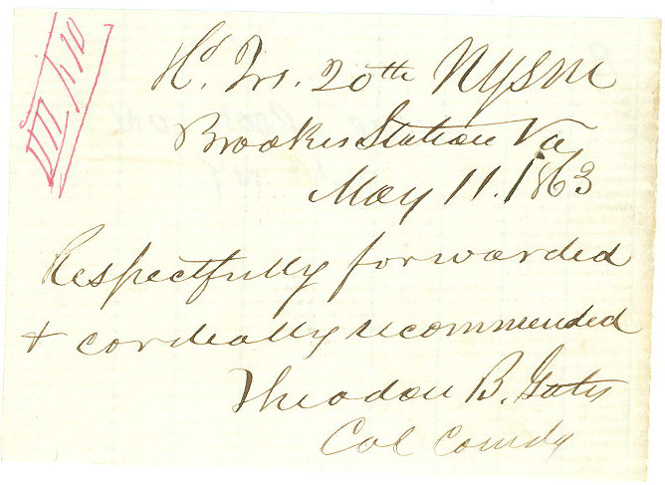 Hd. Qrs. 20th NYSM
Brooks Station Va
May 11. 1863
Respectfully forwarded
& cordially recommended
Theodore B. Gates
Col Comdg